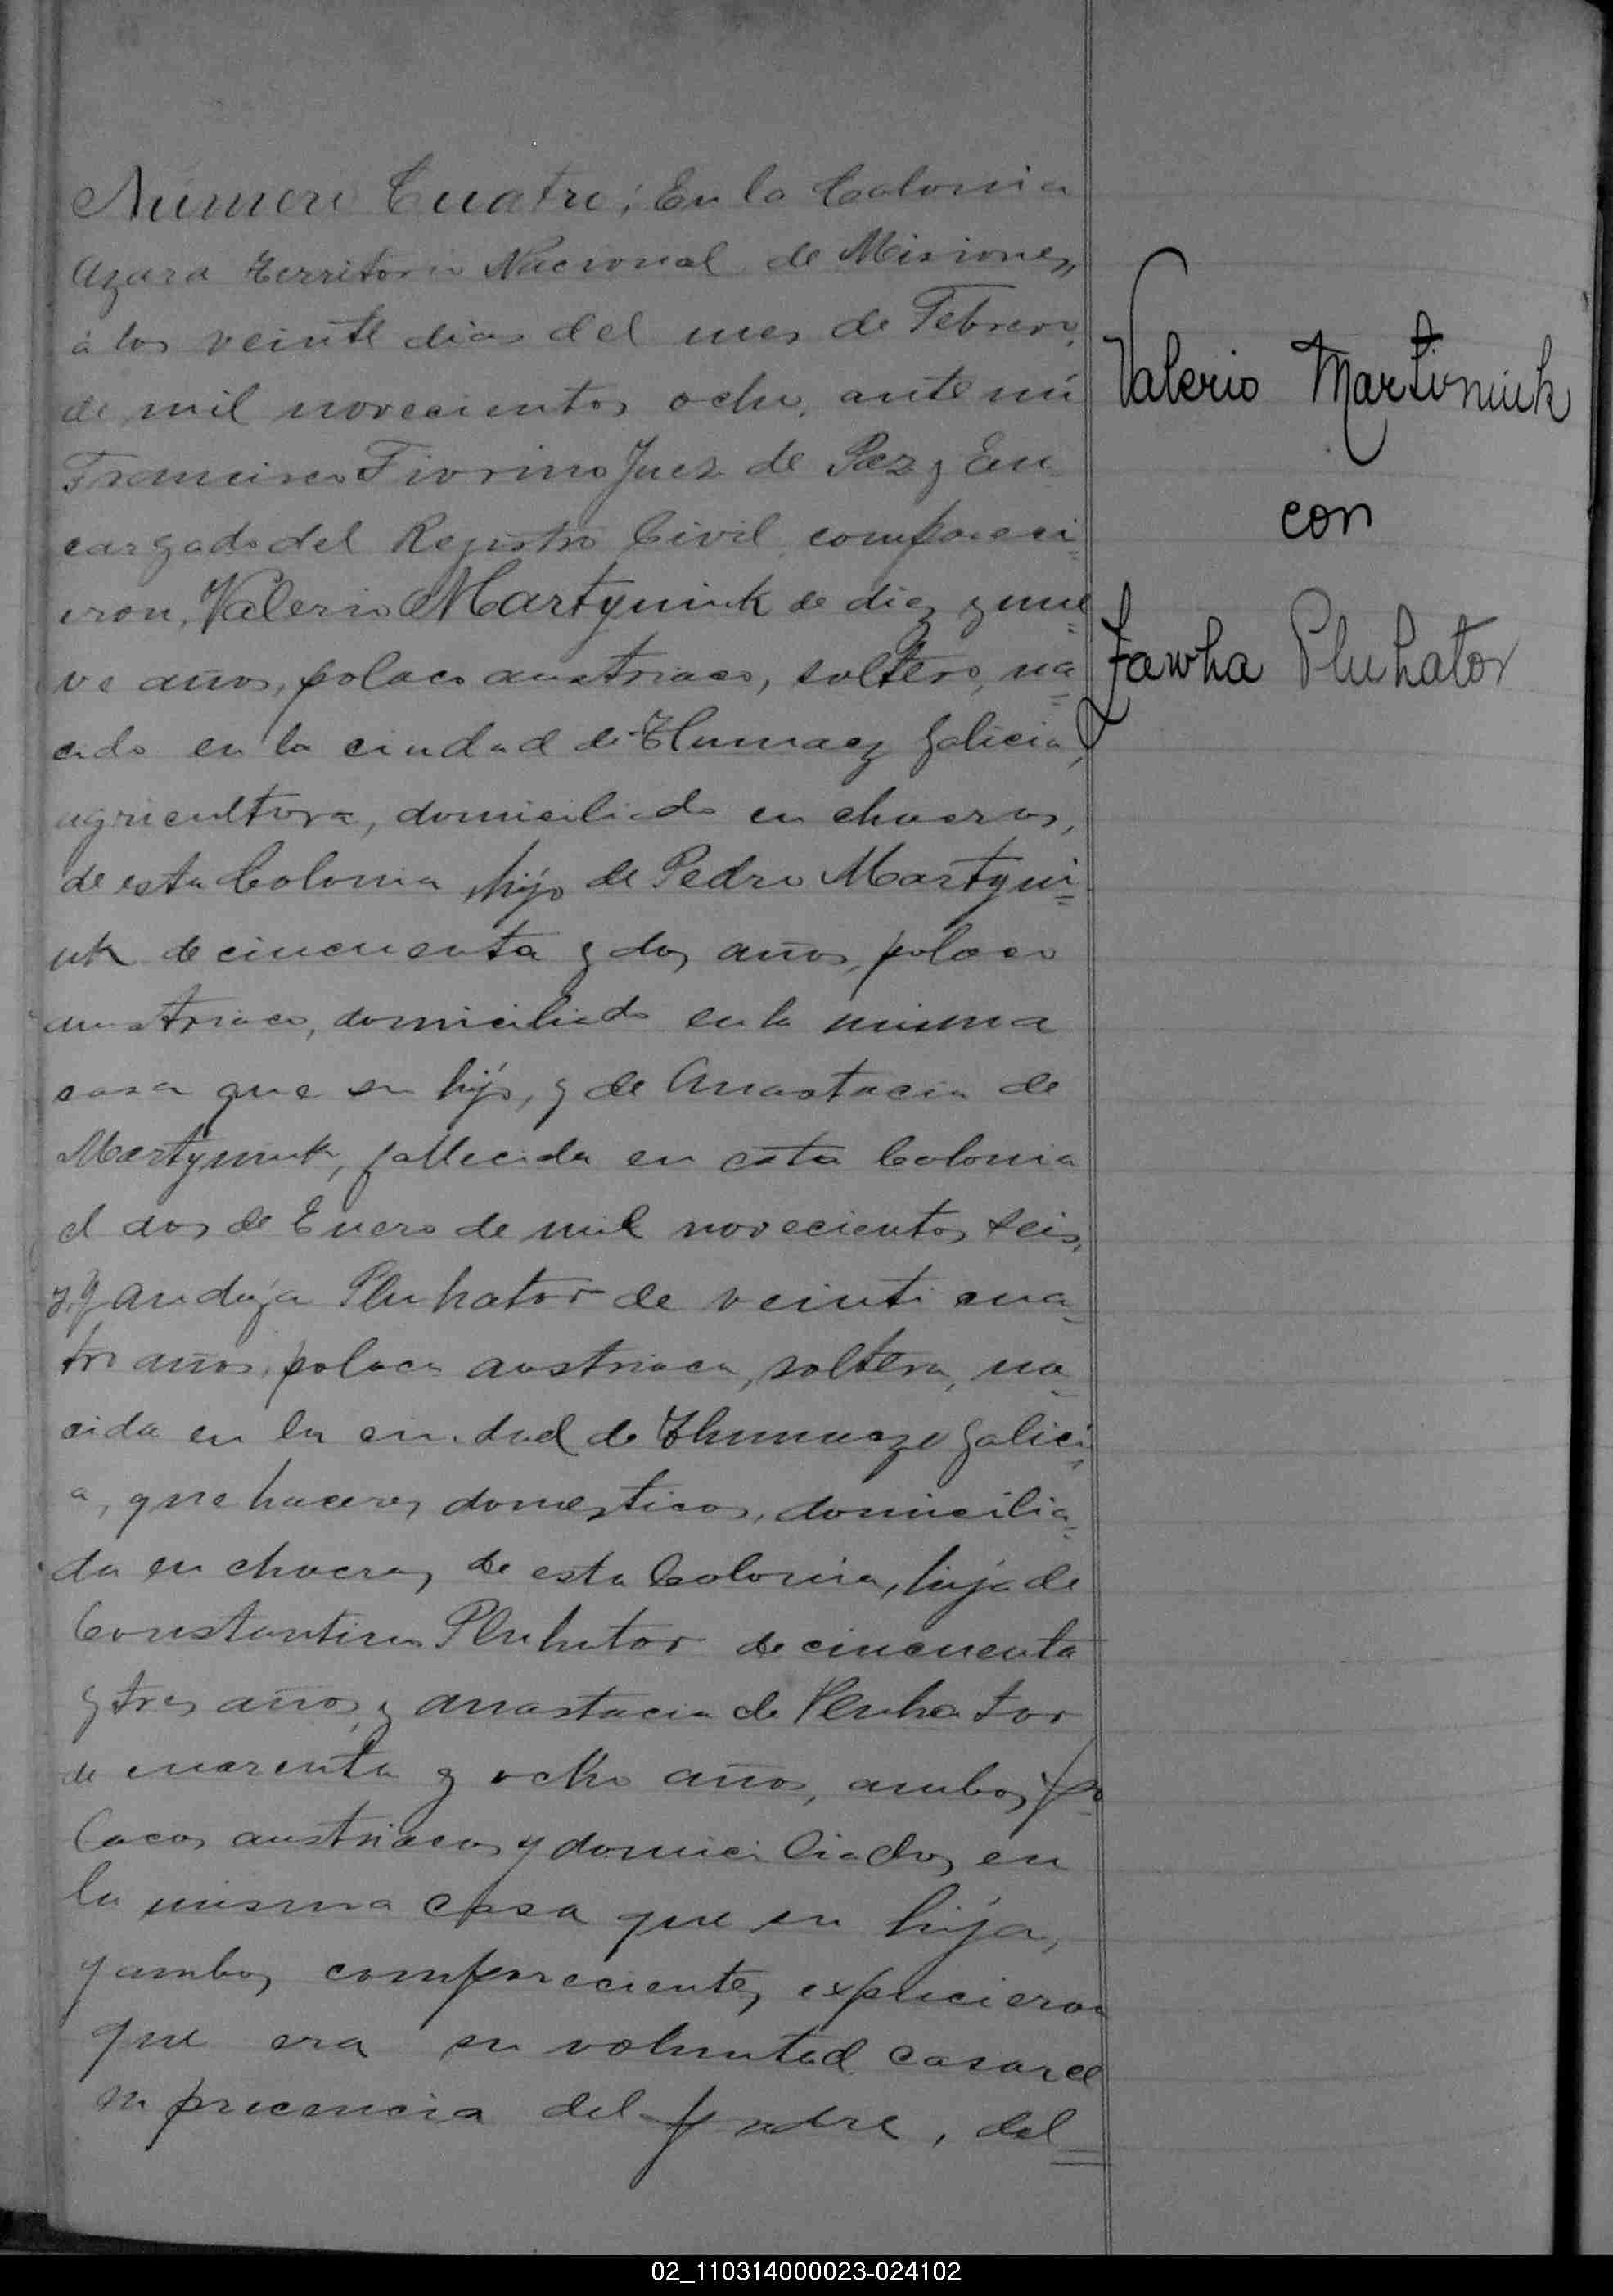 Número Cuatro; En la Colonia
Azara Territorio Nacional de Misiones,
á los veinte dias del mes de Febrero,
de mil novecientos ocho, ante mí
Francisco Fiorino Juez de Paz y En-
cargado del Registro Civil, compareci=
eron, Valerio Martyniuk de diez y nue=
ve años, polaco austriaco, soltero, na=
cido en la ciudad de Galicia,
agricultor, domiciliado en chacras,
de esta Colonia hijo de Pedro Martyni=
uk de cincuenta y dos años, polaco
austriaco, domiciliado en la misma
casa que su hijo, y de Anastacia de
Martyniuk, fallecida en esta Colonia
el dos de Enero de mil novecientos seis,
y Pluhator de veinti cua-
tro años, polaca austriaca, soltera, na-
cida en la ciudad de Galici=
a, que haceres domesticos, domicilia=
da en chacras de esta Colonia, hija de
Constantino Pluhator de cincuenta
y tres años, y Anastacia de Pluhator
de cuarenta y ocho años, ambos po-
lacos austriacos y domiciliados en
la misma casa que su hija,
y ambos comparecientes expucieron
que era su voluntad casarce
en precencia del padre, del
Valerio Martiniuk
con
Fawha Pluhator
02_110314000023-024102